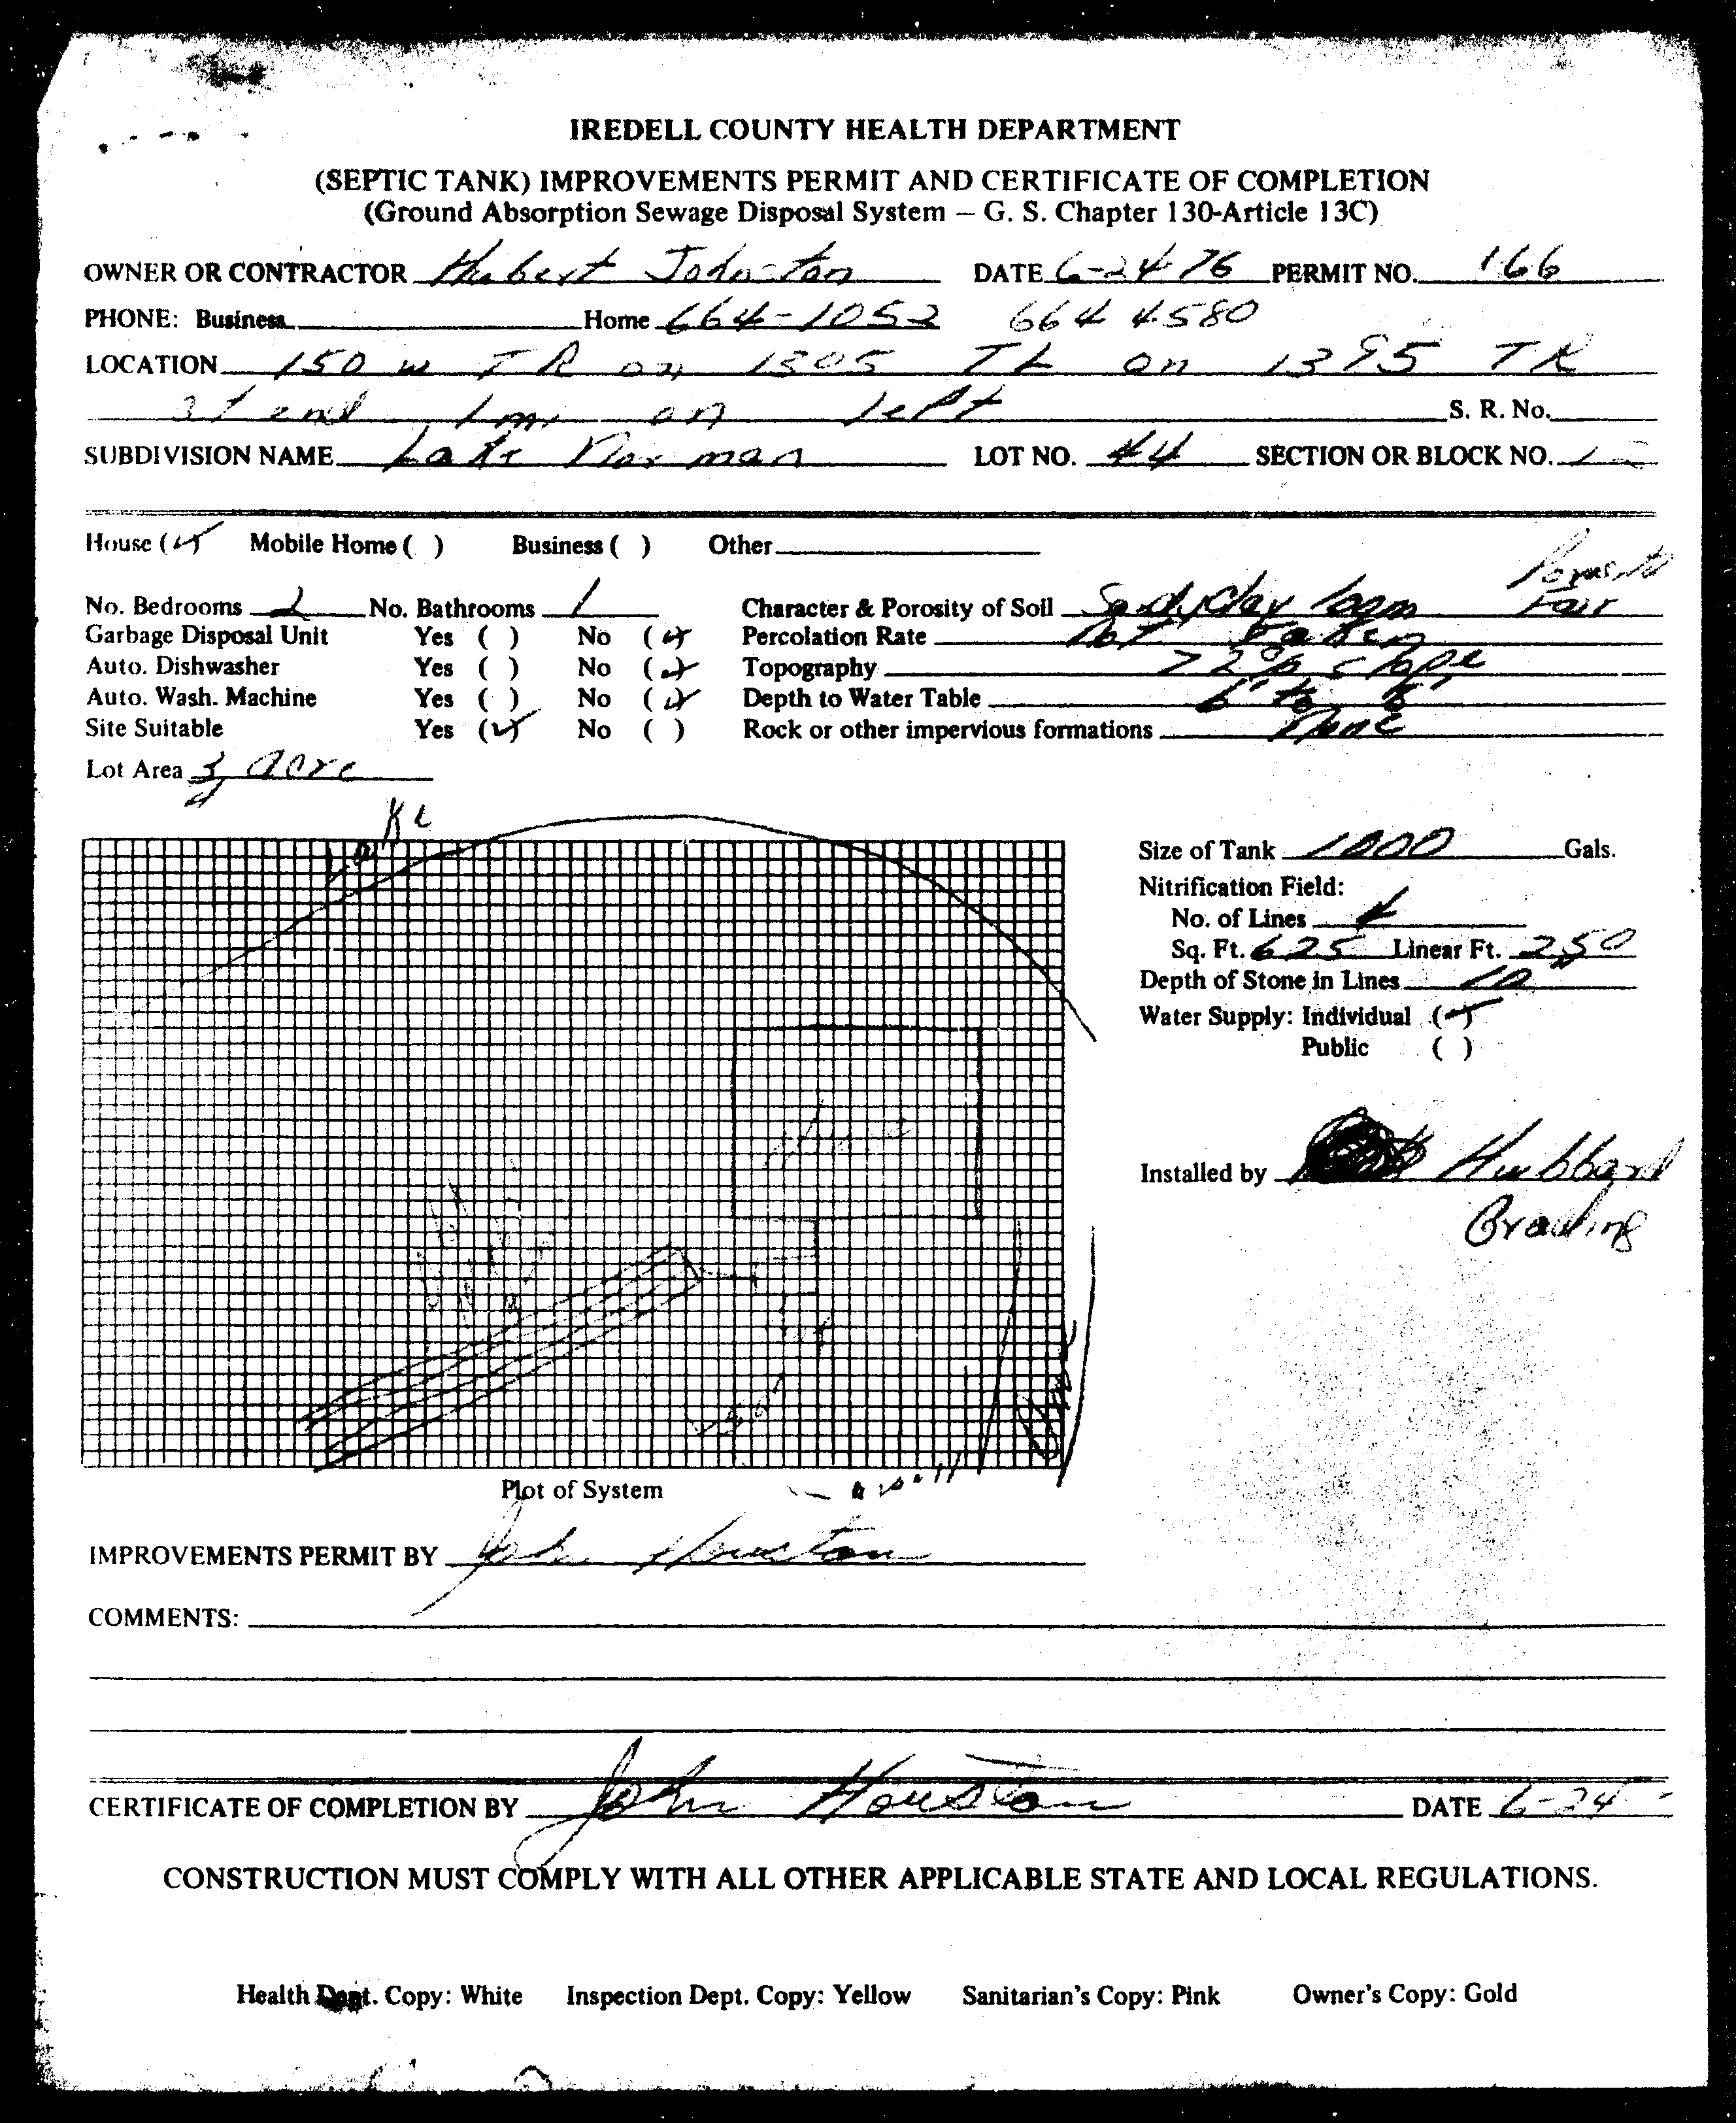 IREDELL COUNTY HEALTH DEPARTMENT
(SEPTIC TANK) IMPROVEMENTS PERMIT AND CERTIFICATE OF COMPLETION
(Ground Absorption Sewage Disposal System – G. S. Chapter 130-Article 13C)
OWNER OR CONTRACTOR Hubert Johnston DATE 6-24-76 PERMIT NO. 166
PHONE: Business Home 664-1052 664 4580
LOCATION 150 W TR on 1305 TL on 1395 TR
at end 1 mi on left S. R. No.
SUBDIVISION NAME Lake Norman LOT NO. 44 SECTION OR BLOCK NO.
House (✓) Mobile Home ( ) Business ( ) Other
No. Bedrooms 2 No. Bathrooms 1 Character & Porosity of Soil Sandy Clay loam Porosity Fair
Garbage Disposal Unit Yes ( ) No (✓) Percolation Rate Not Taken
Auto. Dishwasher Yes ( ) No (✓) Topography 22% slope
Auto. Wash. Machine Yes ( ) No (✓) Depth to Water Table 6' to 8'
Site Suitable Yes (✓) No ( ) Rock or other impervious formations None
Lot Area acre
Lake
Size of Tank 1000 Gals.
Nitrification Field:
No. of Lines 4
Sq. Ft. 625 Linear Ft. 250
Depth of Stone in Lines 10
Water Supply: Individual (✓)
Public ( )
House
Installed by Hubbard
Grading
Plot of System
IMPROVEMENTS PERMIT BY John Houston
COMMENTS:
CERTIFICATE OF COMPLETION BY John Houston DATE 6-24
CONSTRUCTION MUST COMPLY WITH ALL OTHER APPLICABLE STATE AND LOCAL REGULATIONS.
Health Dept. Copy: White Inspection Dept. Copy: Yellow Sanitarian's Copy: Pink Owner's Copy: Gold